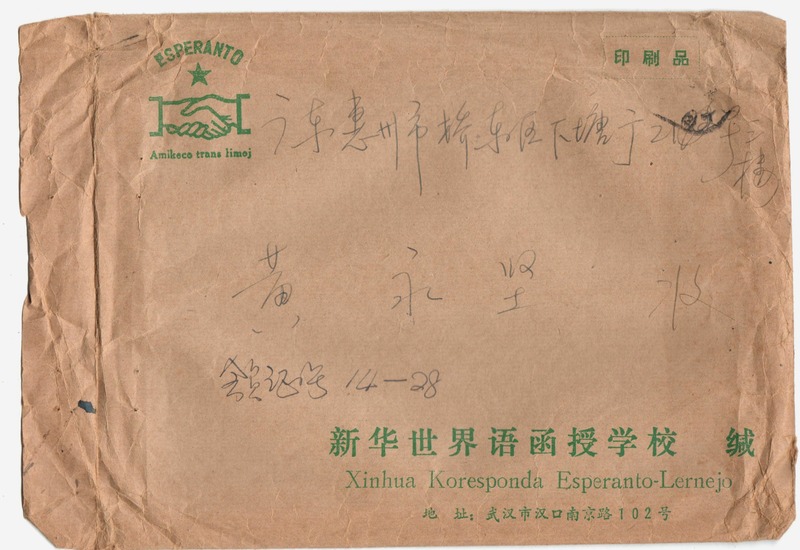 ESPERANTO
Amikeco trans limoj
印刷品
广东惠州市桥东区下塘
二楼
黄永坚 收
会员证号 14-28
新华世界语函授学校 缄
Xinhua Koresponda Esperanto-Lernejo
地 址: 武汉市汉口南京路102号